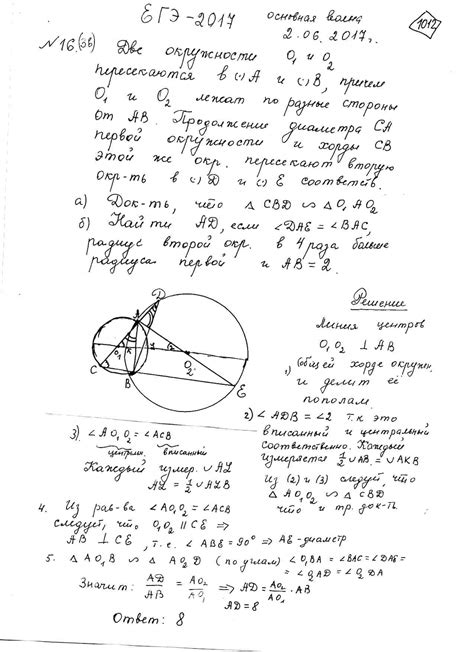 ЕГЭ-2017 основная волна
2.06.2017г.
1012
№16.(36) Две окружности O₁ и O₂
пересекаются в (·)A и (·)B, причем
O₁ и O₂ лежат по разные стороны
от AB. Продолжение диаметра CA
первой окружности и хорды CB
этой же окр. пересекают вторую
окр-ть в (·)D и (·)E соответств.
а) Док-ть, что △CBD ∽ △O₁AO₂
б) Найти AD, если ∠DAE = ∠BAC,
радиус второй окр. в 4 раза больше
радиуса первой и AB = 2.
D
A
O₁ K L 2
O₂
C
B
E
Решение
Линия центров
O₁O₂ ⊥ AB
1) (общей хорде окружн.
и делит её
пополам.
2) ∠ADB = ∠2 т.к это
вписанный и центральный
соответственно. Каждый
измеряется ½∪AB = ∪AKB
Из (2) и (3) следует, что
△AO₁O₂ ∽ △CBD
что и тр. док-ть
3). ∠AO₁O₂ = ∠ACB
централ. вписанный
Каждый измер. ∪AL
AL = ½∪ALB
4. Из рав-ва ∠AO₁O₂ = ∠ACB
следует, что O₁O₂ || CE ⇒
AB ⊥ CE, т.е. ∠ABE = 90° ⇒ AE-диаметр
5. △AO₁B ∽ △AO₂D (по углам) ∠O₁BA = ∠BAC = ∠DAE =
= ∠O₂AD = ∠O₂DA
Значит: AD/AB = AO₂/AO₁ ⇒ AD = AO₂/AO₁ · AB
AD = 8
Ответ: 8